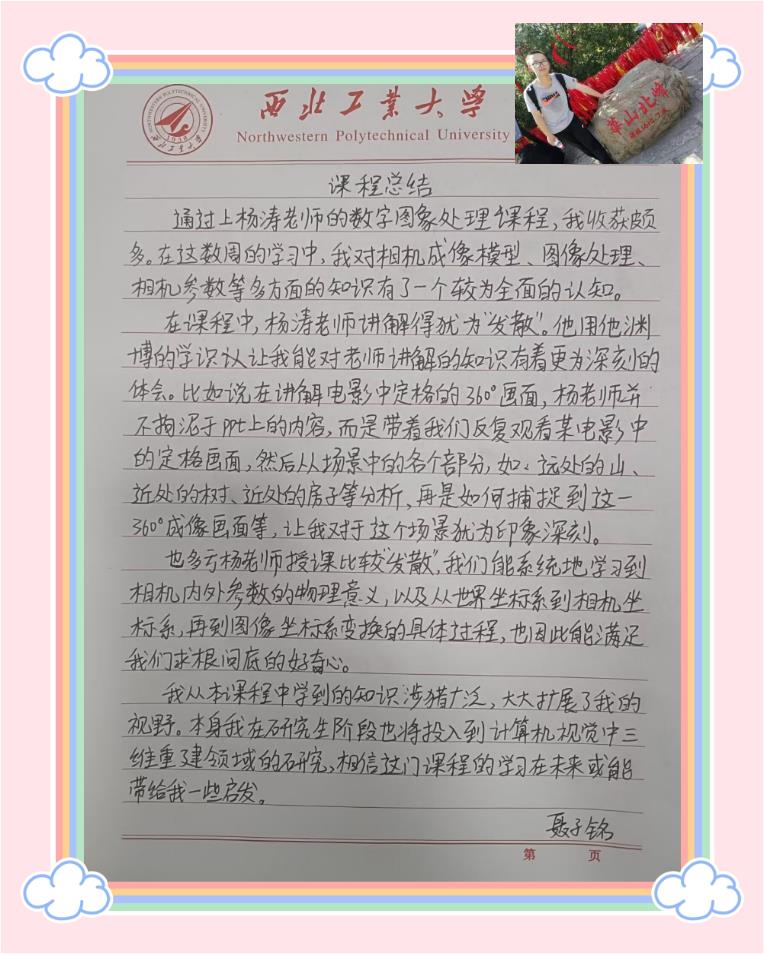 西北工业大学
Northwestern Polytechnical University
华山北峰
课程总结
通过上杨涛老师的数字图象处理课程,我收获颇
多。在这数周的学习中,我对相机成像模型、图像处理、
相机参数等多方面的知识有了一个较为全面的认知。
在课程中,杨涛老师讲解得犹为“发散”。他用他渊
博的学识让我能对老师讲解的知识有着更为深刻的
体会。比如说在讲解电影中定格的360°画面,杨老师并
不拘泥于ppt上的内容,而是带着我们反复观看某电影中
的定格画面,然后从场景中的各个部分,如:远处的山、
近处的树、近处的房子等分析,再是如何捕捉到这一
360°成像画面等,让我对于这个场景犹为印象深刻。
也多亏杨老师授课比较“发散”,我们能系统地学习到
相机内外参数的物理意义,以及从世界坐标系到相机坐
标系,再到图像坐标系变换的具体过程,也因此能满足
我们求根问底的好奇心。
我从本课程中学到的知识涉猎广泛,大大扩展了我的
视野。本身我在研究生阶段也将投入到计算机视觉中三
维重建领域的研究,相信这门课程的学习在未来或能
带给我一些启发。
聂子铭
第 页